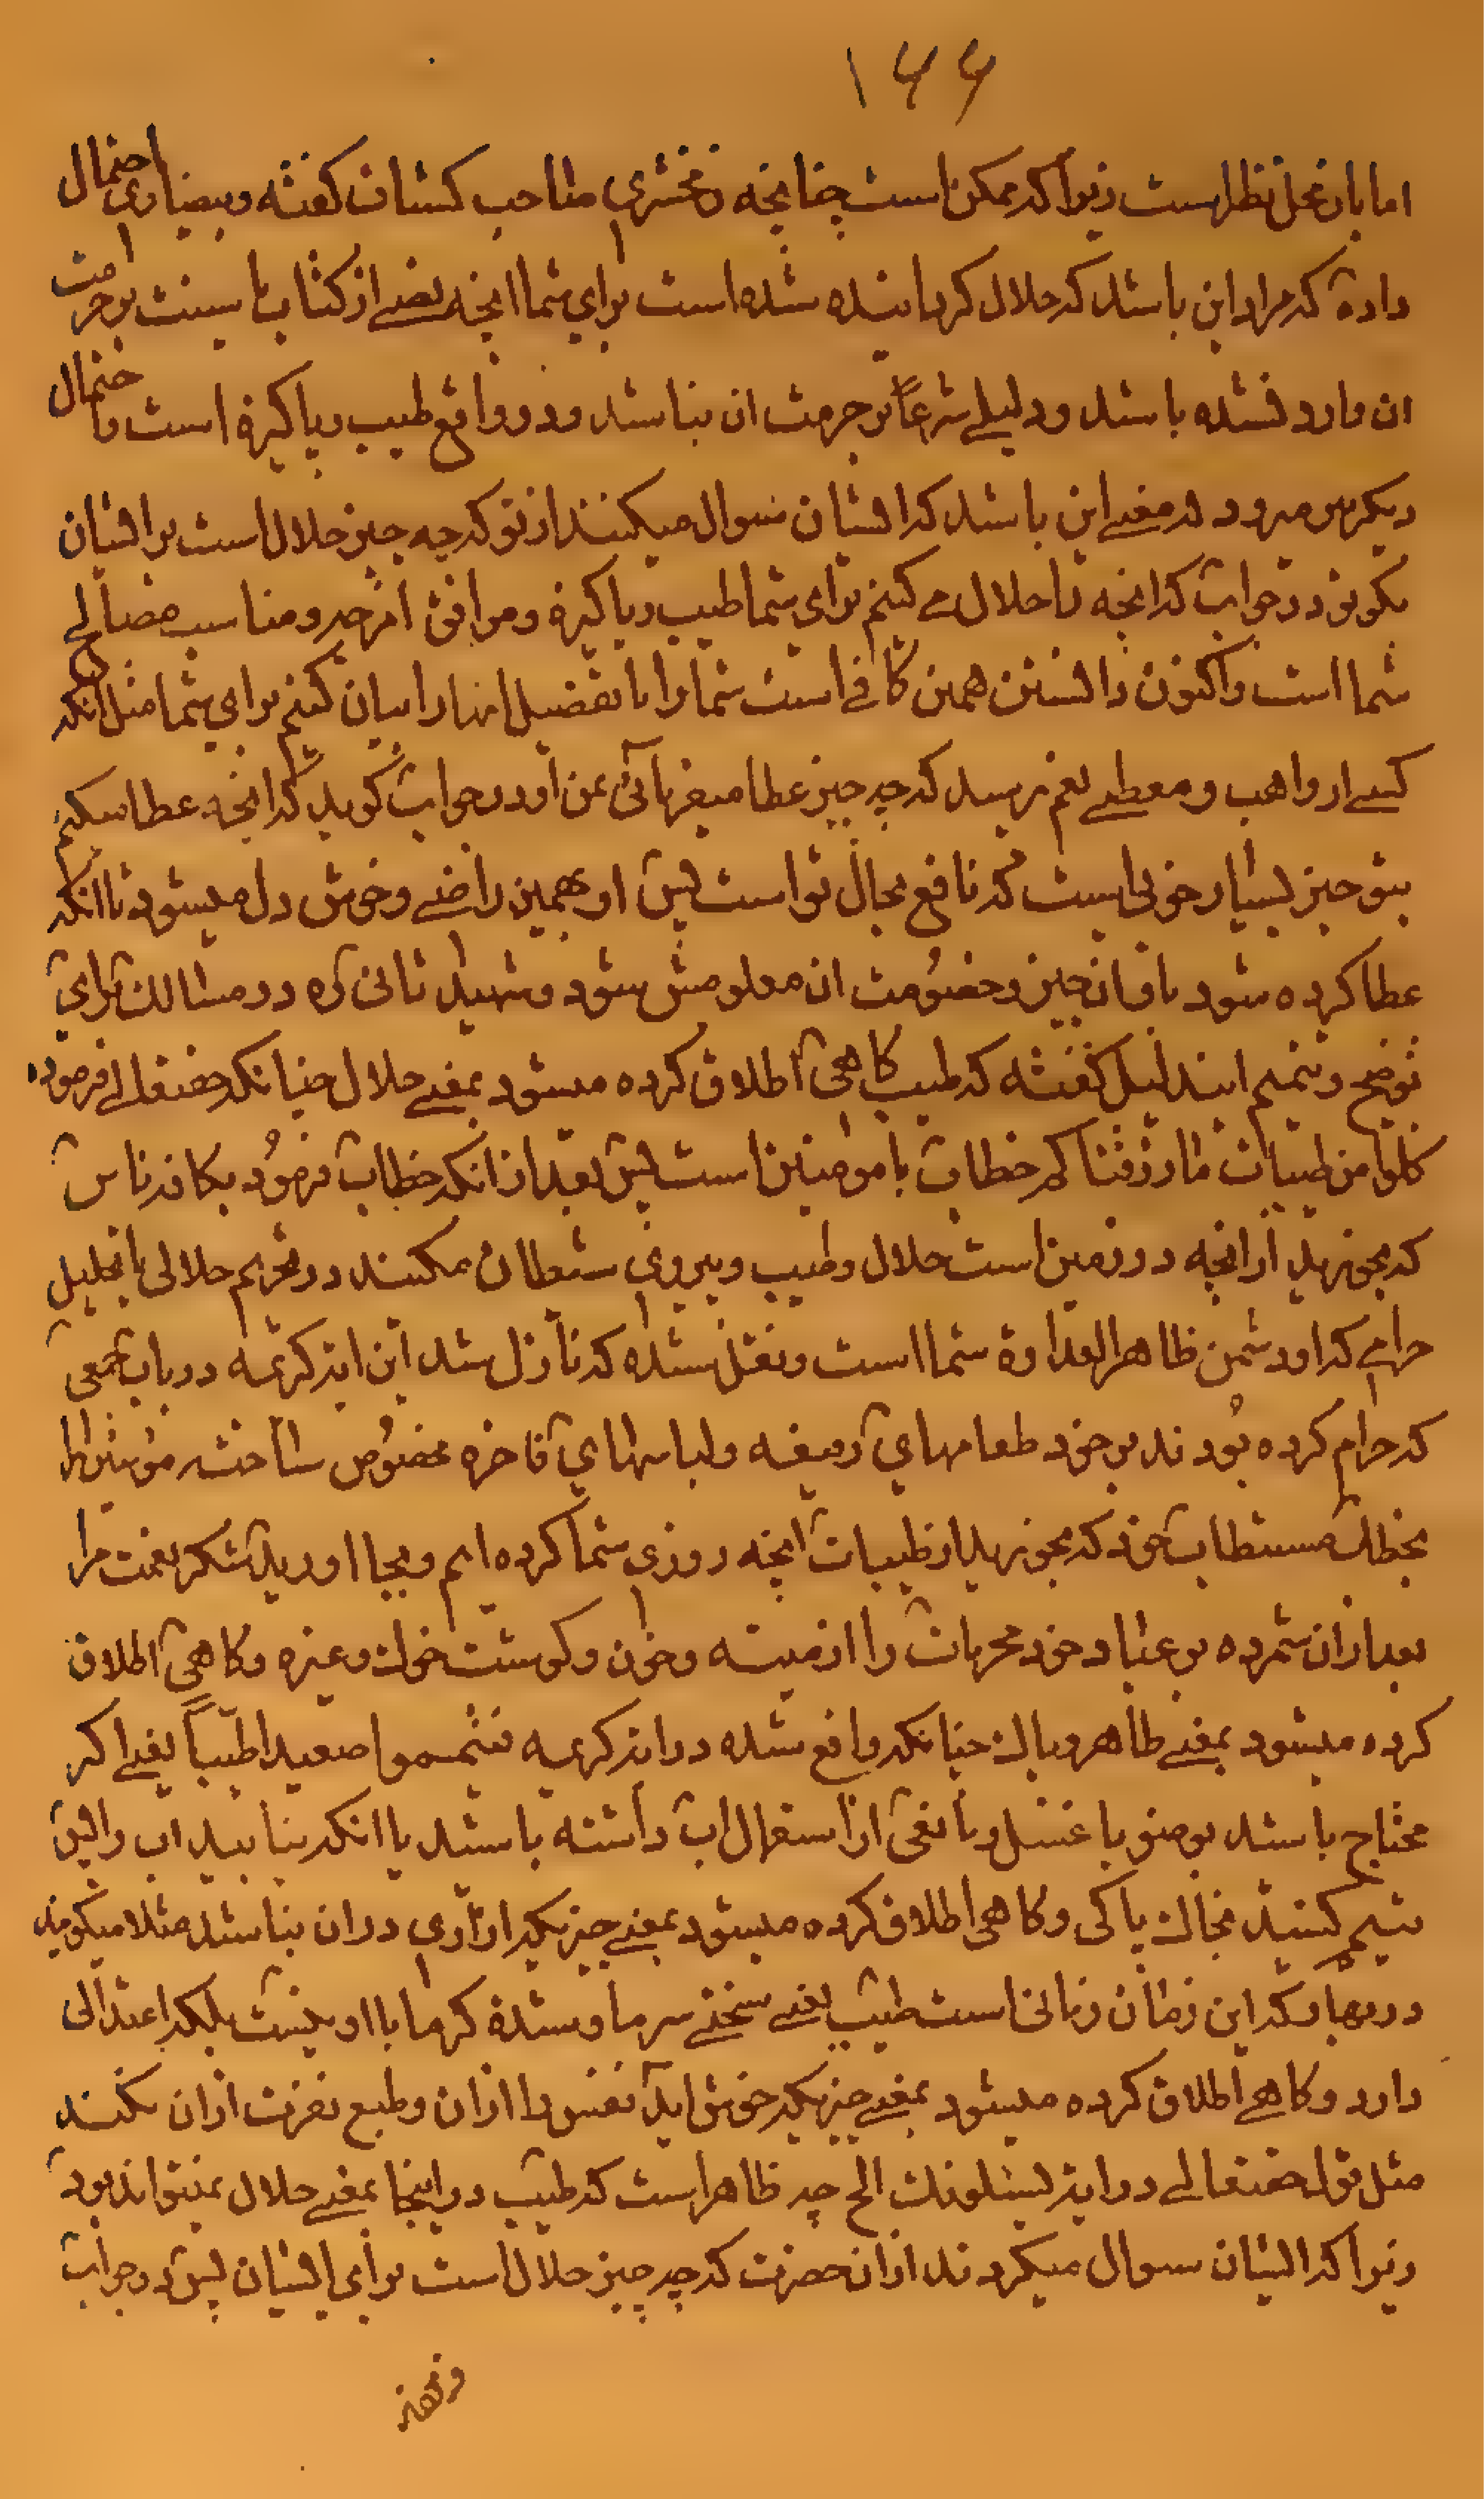 ۱۶۶
اما باز محل نظر است زیرا که ممکن است چنانچه زمخشری صاحب کشاف گفته و بیضاوی احتمال
داده که مراد این باشد که حلال گردانیده شده است برای شما آنچه نصی از کتاب یا سنت بر حرمت
آن وارد نشده باشد و دلیلی شرعاً بر حرمت آن نباشد و در واقع طیب و پاکیزه است و احتمال
دیگر میرود که معنی این باشد که ایشان سوال میکنند از تو که چه چیز حلال است بر ایشان
بگو تو در جواب که آنچه ما حلال می کنیم برای شما طیب و پاکیزه و موافق امزجه و مناسب مصالح
شما است و اکنون دانستن همین کافی است شما را تا بتفصیل آنها را بیان کنیم برای شما مثل آنکه
کسی از واهب و معطی نعم پرسد که چه چیز عطا میفرمائی بمن او در جواب گوید که آنچه عطا میکنیم
بتو چیز بسیار خوبی است که نافع بحال تو است پس او بهمین راضی و خوش دل میشود تا آنکه
عطا کرده شود باو آن چیز و خصوصیت آن معلومش شود و شهید ثانی ره در مسالک برای
توضیح و تتمیم این دلیل گفته که طیب گاهی اطلاق کرده میشود بمعنی حلال چنانکه حقتعالی فرموده
کلوا من طیبات ما رزقناکم خطاب با مومنین است پس بعد از آنکه خطاب فرمود بکافه ناس
که بخورید از آنچه در زمین است حلال و طیب و پیروی شیطان مکنید در تحریم حلالی یا تحلیل
حرامی که او دشمن ظاهر العداوة شما است و نقل شده که نازل شد این آیه کریمه در باب جمعی
که حرام کرده بودند بر خود طعامهای رفیعه و لباسهای فاخره مخصوص ساخته مومنین را
بخطاب مستطاب خود که بخورید از طیبات آنچه روزی شما کرده ایم و بجا آورید شکر نعمت مرا
بعد از آن شمرده بر عباد خود محرمات را از میته و خون و گوشت خوک و غیره و گاهی اطلاق
کرده میشود بمعنی طاهر و پاک چنانکه واقع شده در آیه کریمه فتیمموا صعیدا طیباً یعنی اگر
محتاج باشید بوضو یا غسل و مانعی از استعمال آب داشته باشید یا آنکه نیابید آب را پس
تیمم کنید بخاک پاکی و گاهی اطلاق کرده میشود بمعنی چیزیکه آزاری در آن نباشد مثلا میگویند
در بهار که این زمان زمانی است طیب یعنی سختی سرما و شدة گرما با او نیست بلکه اعتدالی
دارد و گاهی اطلاق کرده میشود بمعنی چیزیکه خوش آید نفس را از آن و طبع نفرت از آن نکند
مثل قول حقتعالی در آیه یسئلونک الخ چه ظاهر است که طیب در اینجا بمعنی حلال نمیتواند بود
زیرا که ایشان سوال میکردند از آنحضرت که چه چیز حلال است برای ایشان پس در جواب